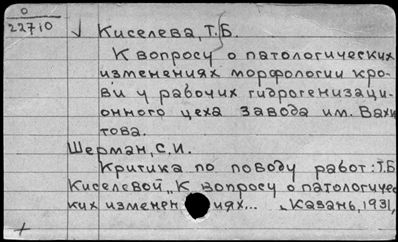 0
22710
√ Киселева, Т.Б.
К вопросу о патологических
изменениях морфологии кро-
ви у рабочих гидрогенизаци-
онного цеха завода им. Вахи
това.
Шерман, С.И.
Критика по поводу работ: Т.Б.
Киселевой „К вопросу о патологичес
ких изменен иях... „Казань, 1931,
+